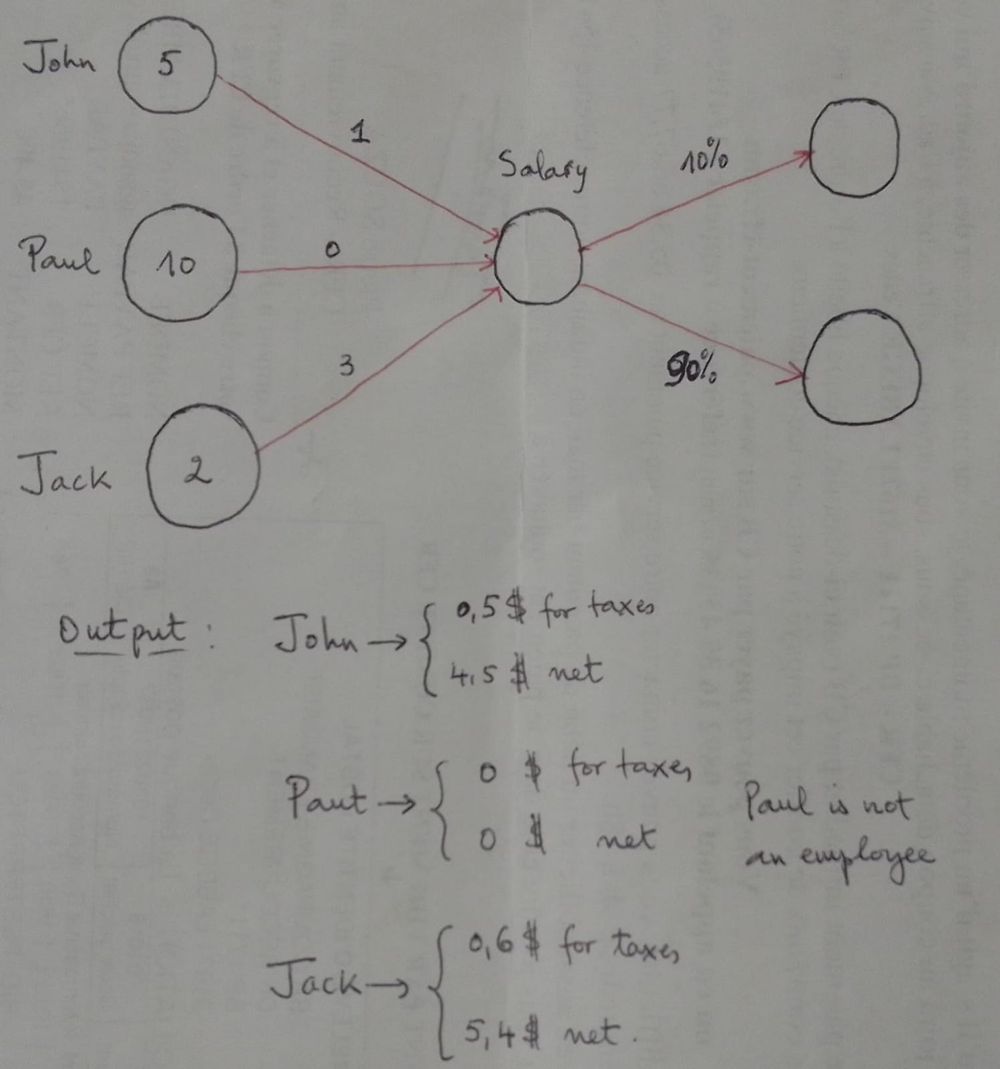 John 5
1
Salary
10%
Paul 10
0
3
90%
Jack 2
Output : John → 0,5 $ for taxes
4,5 $ net
Paut → 0 $ for taxes
0 $ net
Paul is not
an employee
Jack → 0,6 $ for taxes
5,4 $ net.